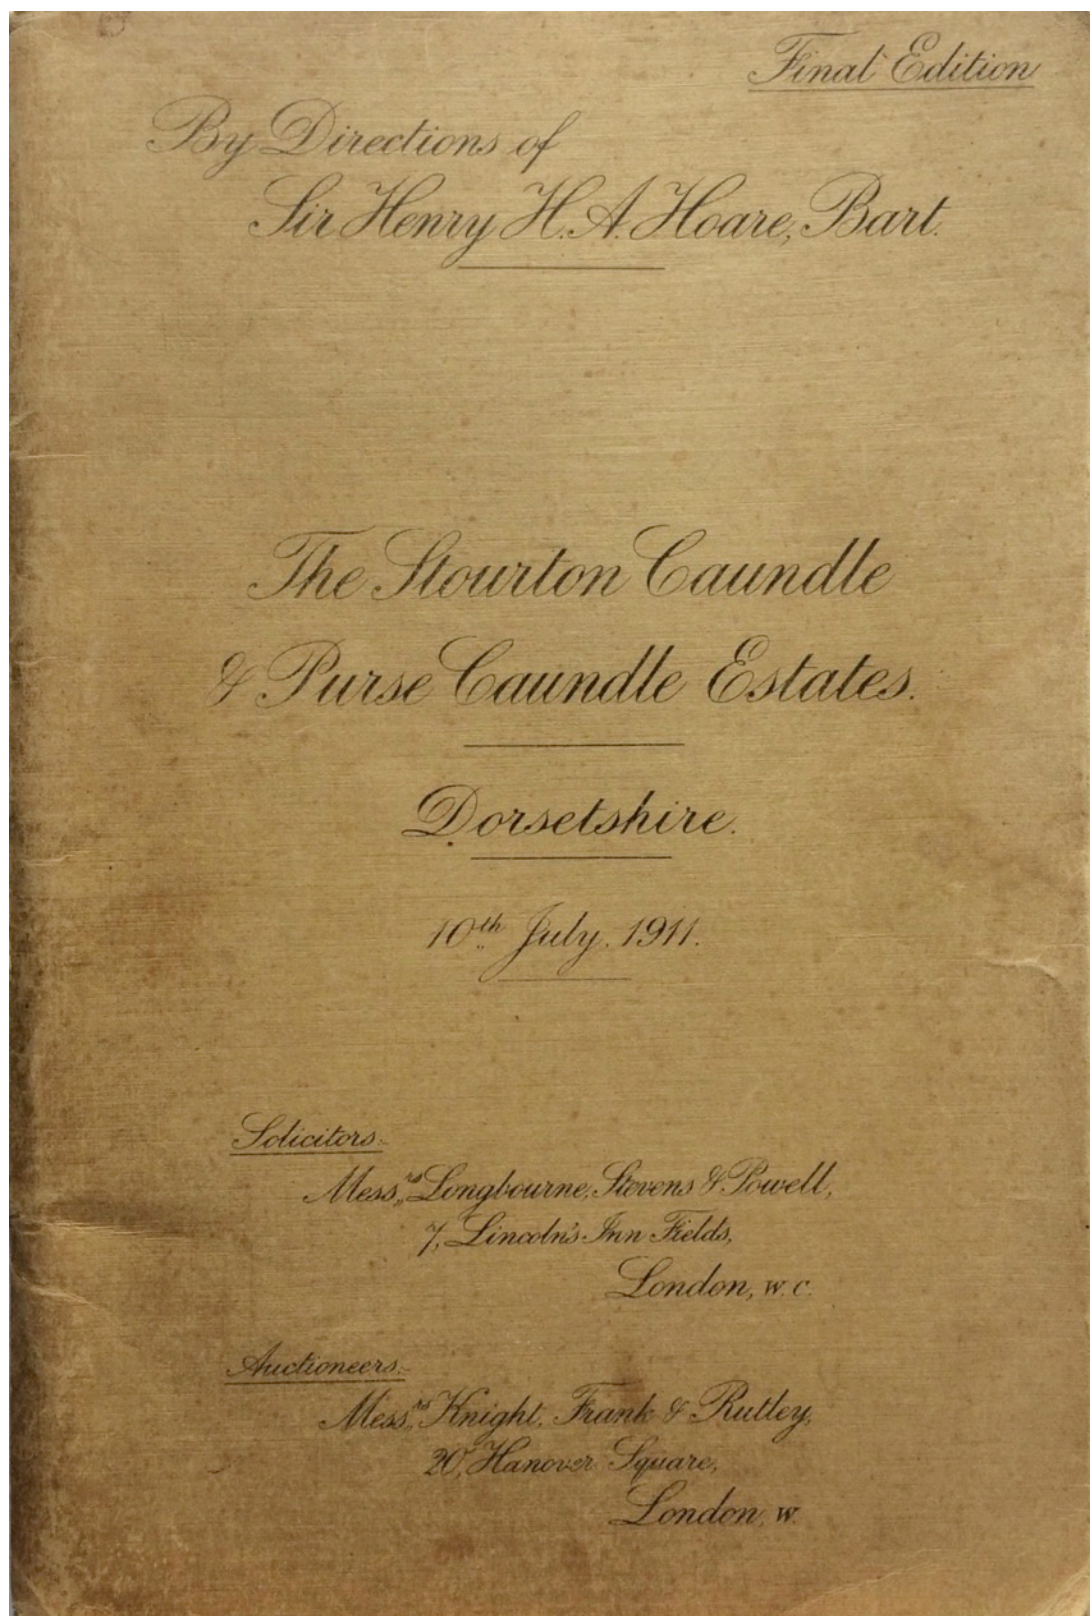 Final Edition
By Directions of
Sir Henry H. A. Hoare, Bart.
The Stourton Caundle
& Purse Caundle Estates.
Dorsetshire.
10th July, 1911.
Solicitors:-
Messrs Longbourne, Stevens & Powell,
7, Lincoln's Inn Fields,
London, W.C.
Auctioneers:-
Messrs Knight, Frank & Rutley,
20, Hanover Square,
London, W.